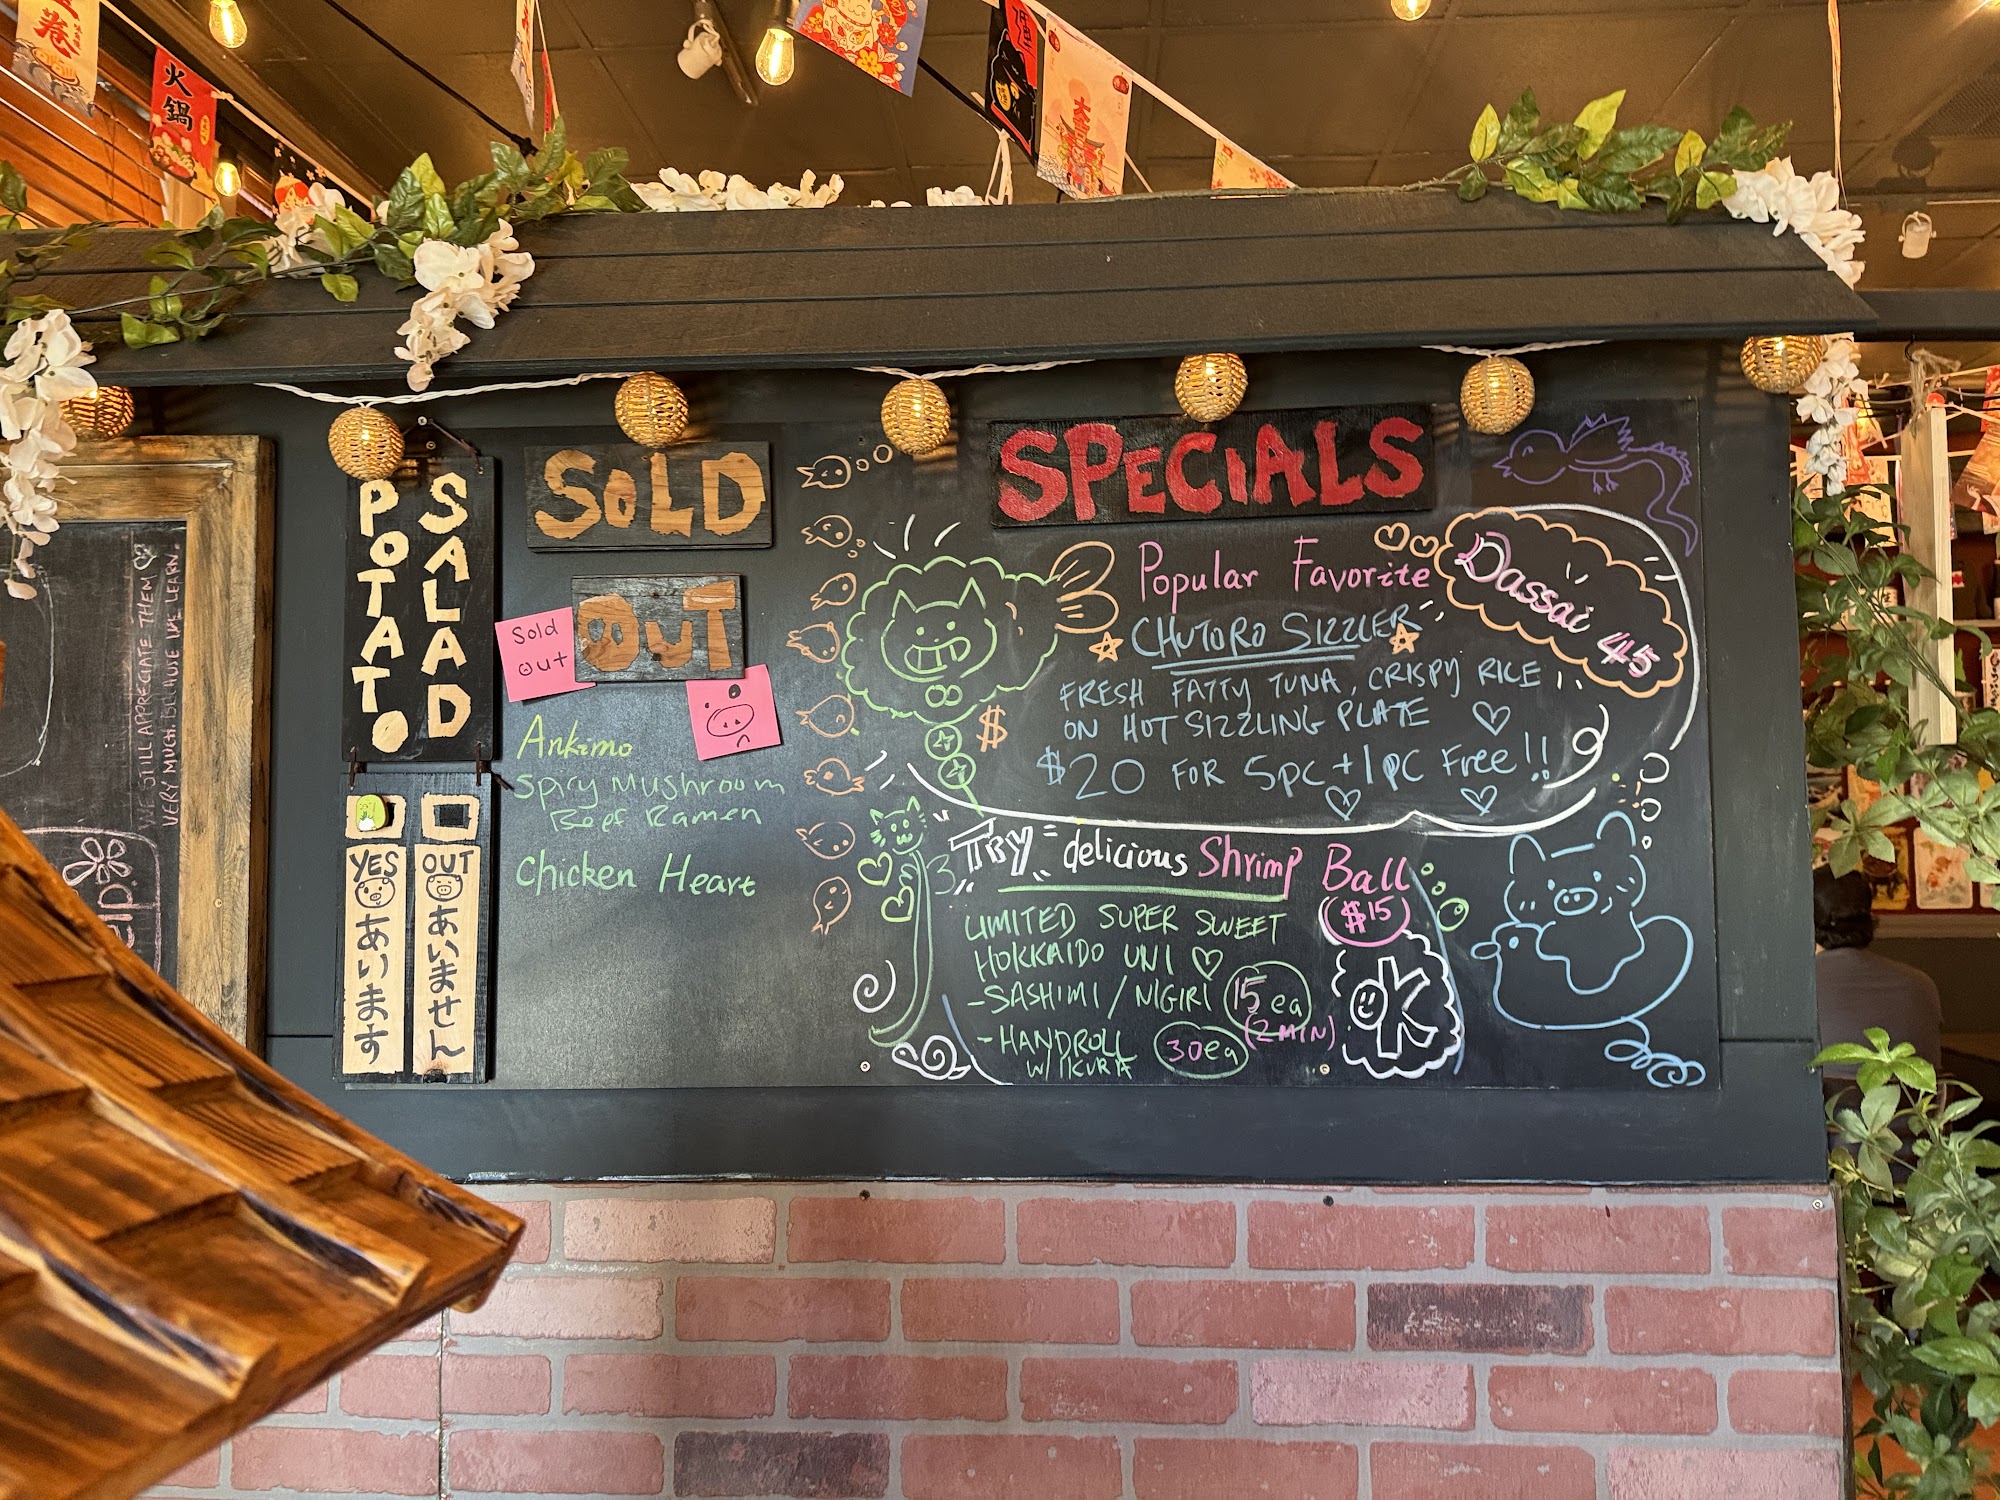 火鍋
WE STILL APPRECIATE THEM
VERY MUCH. BECAUSE WE LEARN.
POTATO
SALAD
YES
あいます
OUT
あいません
SOLD
OUT
Sold
out
Ankimo
Spicy Mushroom
Beef Ramen
Chicken Heart
SPECIALS
Popular Favorite
Dassai 45
CHUTORO SIZZLER
FRESH FATTY TUNA, CRISPY RICE
ON HOT SIZZLING PLATE
$
$20 FOR 5pc + 1pc Free!!
"Try" delicious Shrimp Ball
$15
LIMITED SUPER SWEET
HOKKAIDO UNI
- SASHIMI / NIGIRI 15 ea
(2 MIN)
- HANDROLL 30ea
W/ IKURA
OK